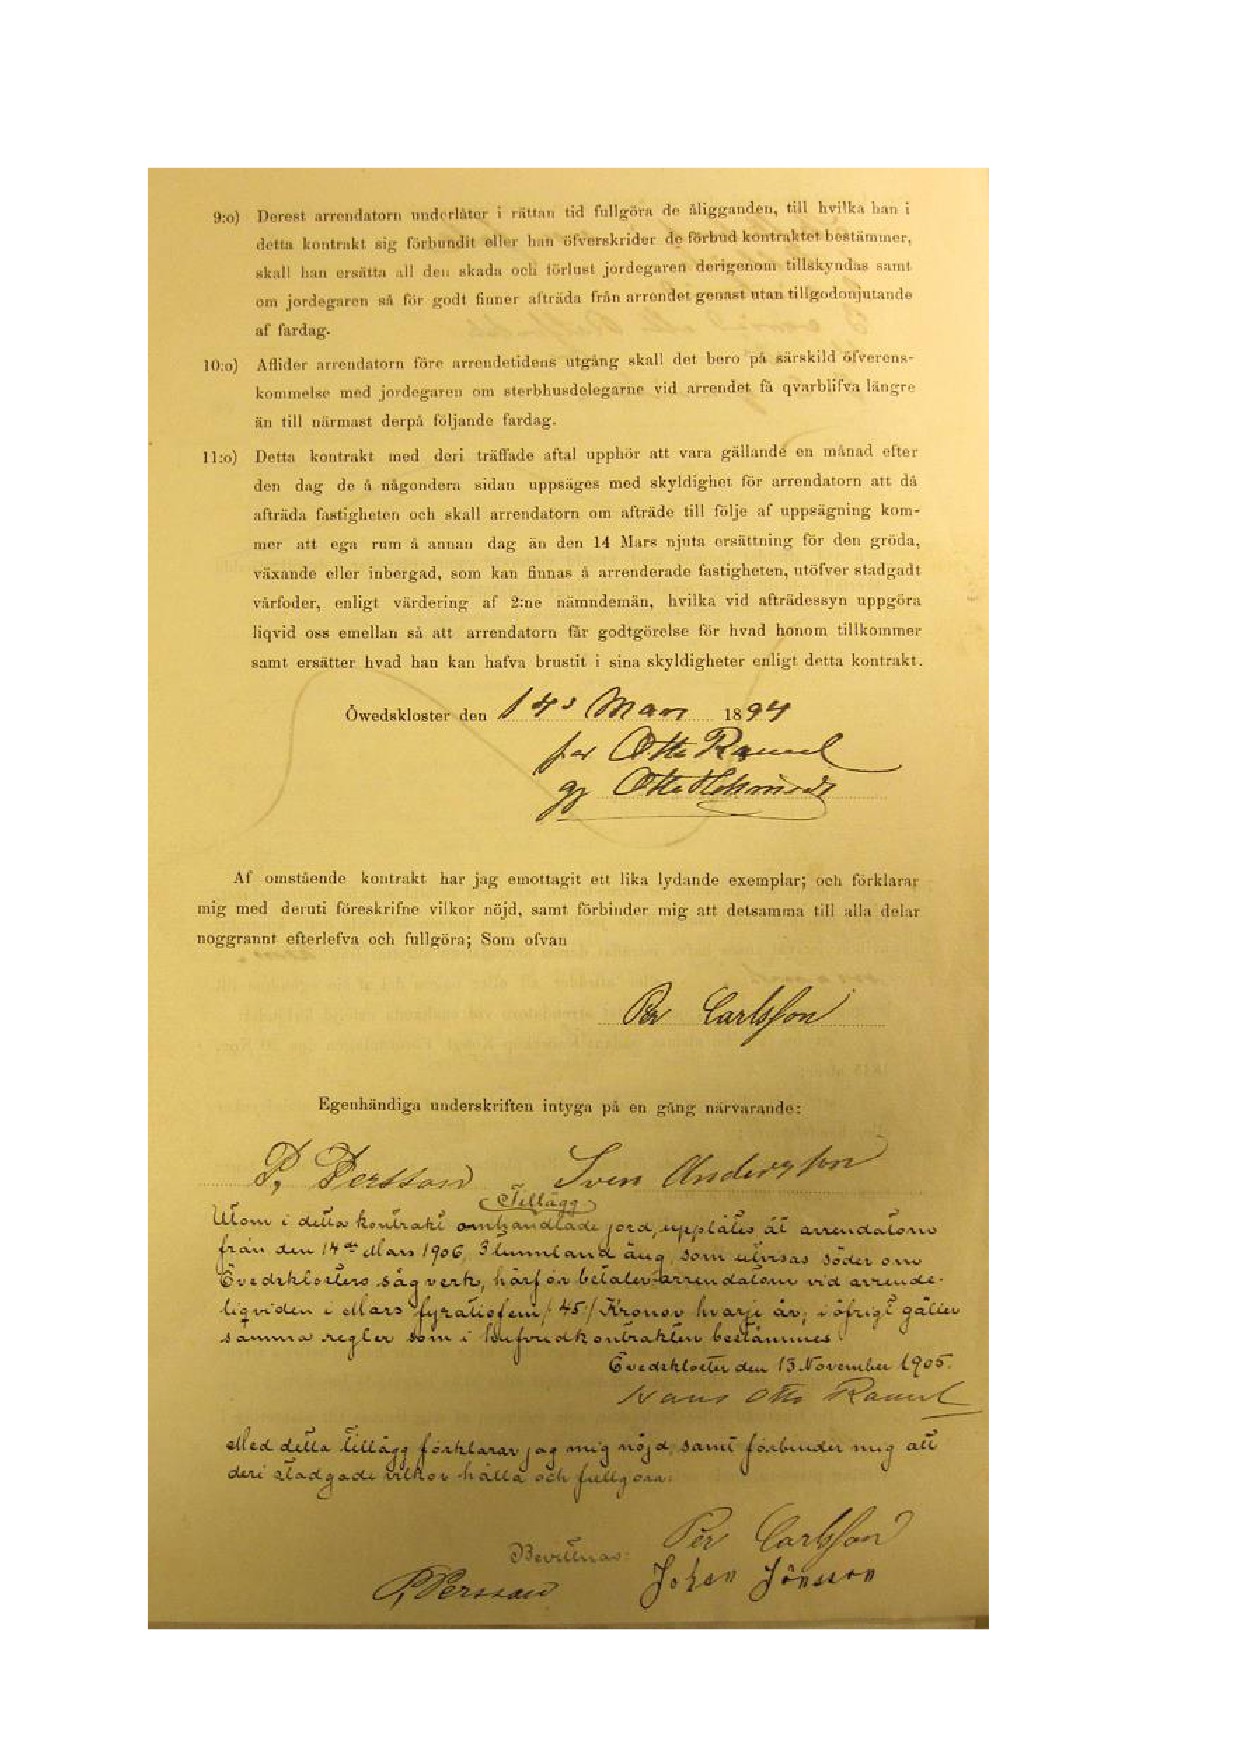 9:o) Derest arrendatorn underlåter i rättan tid fullgöra de åligganden, till hvilka han i
detta kontrakt sig förbundit eller han öfverskrider de förbud kontraktet bestämmer,
skall han ersätta all den skada och förlust jordegaren derigenom tillskyndas samt
om jordegaren så för godt finner afträda från arrendet genast utan tillgodonjutande
af fardag.
10:o) Aflider arrendatorn före arrendetidens utgång skall det bero på särskild öfverens-
kommelse med jordegaren om sterbhusdelegarne vid arrendet få qvarblifva längre
än till närmast derpå följande fardag.
11:o) Detta kontrakt med deri träffade aftal upphör att vara gällande en månad efter
den dag de å någondera sidan uppsäges med skyldighet för arrendatorn att då
afträda fastigheten och skall arrendatorn om afträde till följe af uppsägning kom-
mer att ega rum å annan dag än den 14 Mars njuta ersättning för den gröda,
växande eller inbergad, som kan finnas å arrenderade fastigheten, utöfver stadgadt
vårfoder, enligt värdering af 2:ne nämndemän, hvilka vid afträdessyn uppgöra
liqvid oss emellan så att arrendatorn får godtgörelse för hvad honom tillkommer
samt ersätter hvad han kan hafva brustit i sina skyldigheter enligt detta kontrakt.
Öwedskloster den 14 Mars 1894
för Otto Ramel
Otto
Af omstående kontrakt har jag emottagit ett lika lydande exemplar; och förklarar
mig med deruti föreskrifne vilkor nöjd, samt förbinder mig att detsamma till alla delar
noggrannt efterlefva och fullgöra; Som ofvan
Per Carlsson
Egenhändiga underskriften intyga på en gång närvarande:
P. Persson Sven Andersson
Tillägg
Utom i detta kontrakt omhandlade jord, upplåtes åt arrendatorn
från den 14de Mars 1906, 3 tunnland äng, som utvisas söder om
Övedsklosters sågverk, härför betalar arrendatorn vid arrende-
liqviden i Mars fyratiofem /45:/ Kronor hvarje år; i öfrigt gäller
samma regler som i hufvudkontrakten bestämmes
Övedskloster den 13 November 1905.
Hans Otto Ramel
Med detta tillägg förklarar jag mig nöjd, samt förbinder mig att
deri stadgade vilkor hålla och fullgöra:
Per Carlsson
Bevittnas:
P. Persson Johan Jönsson